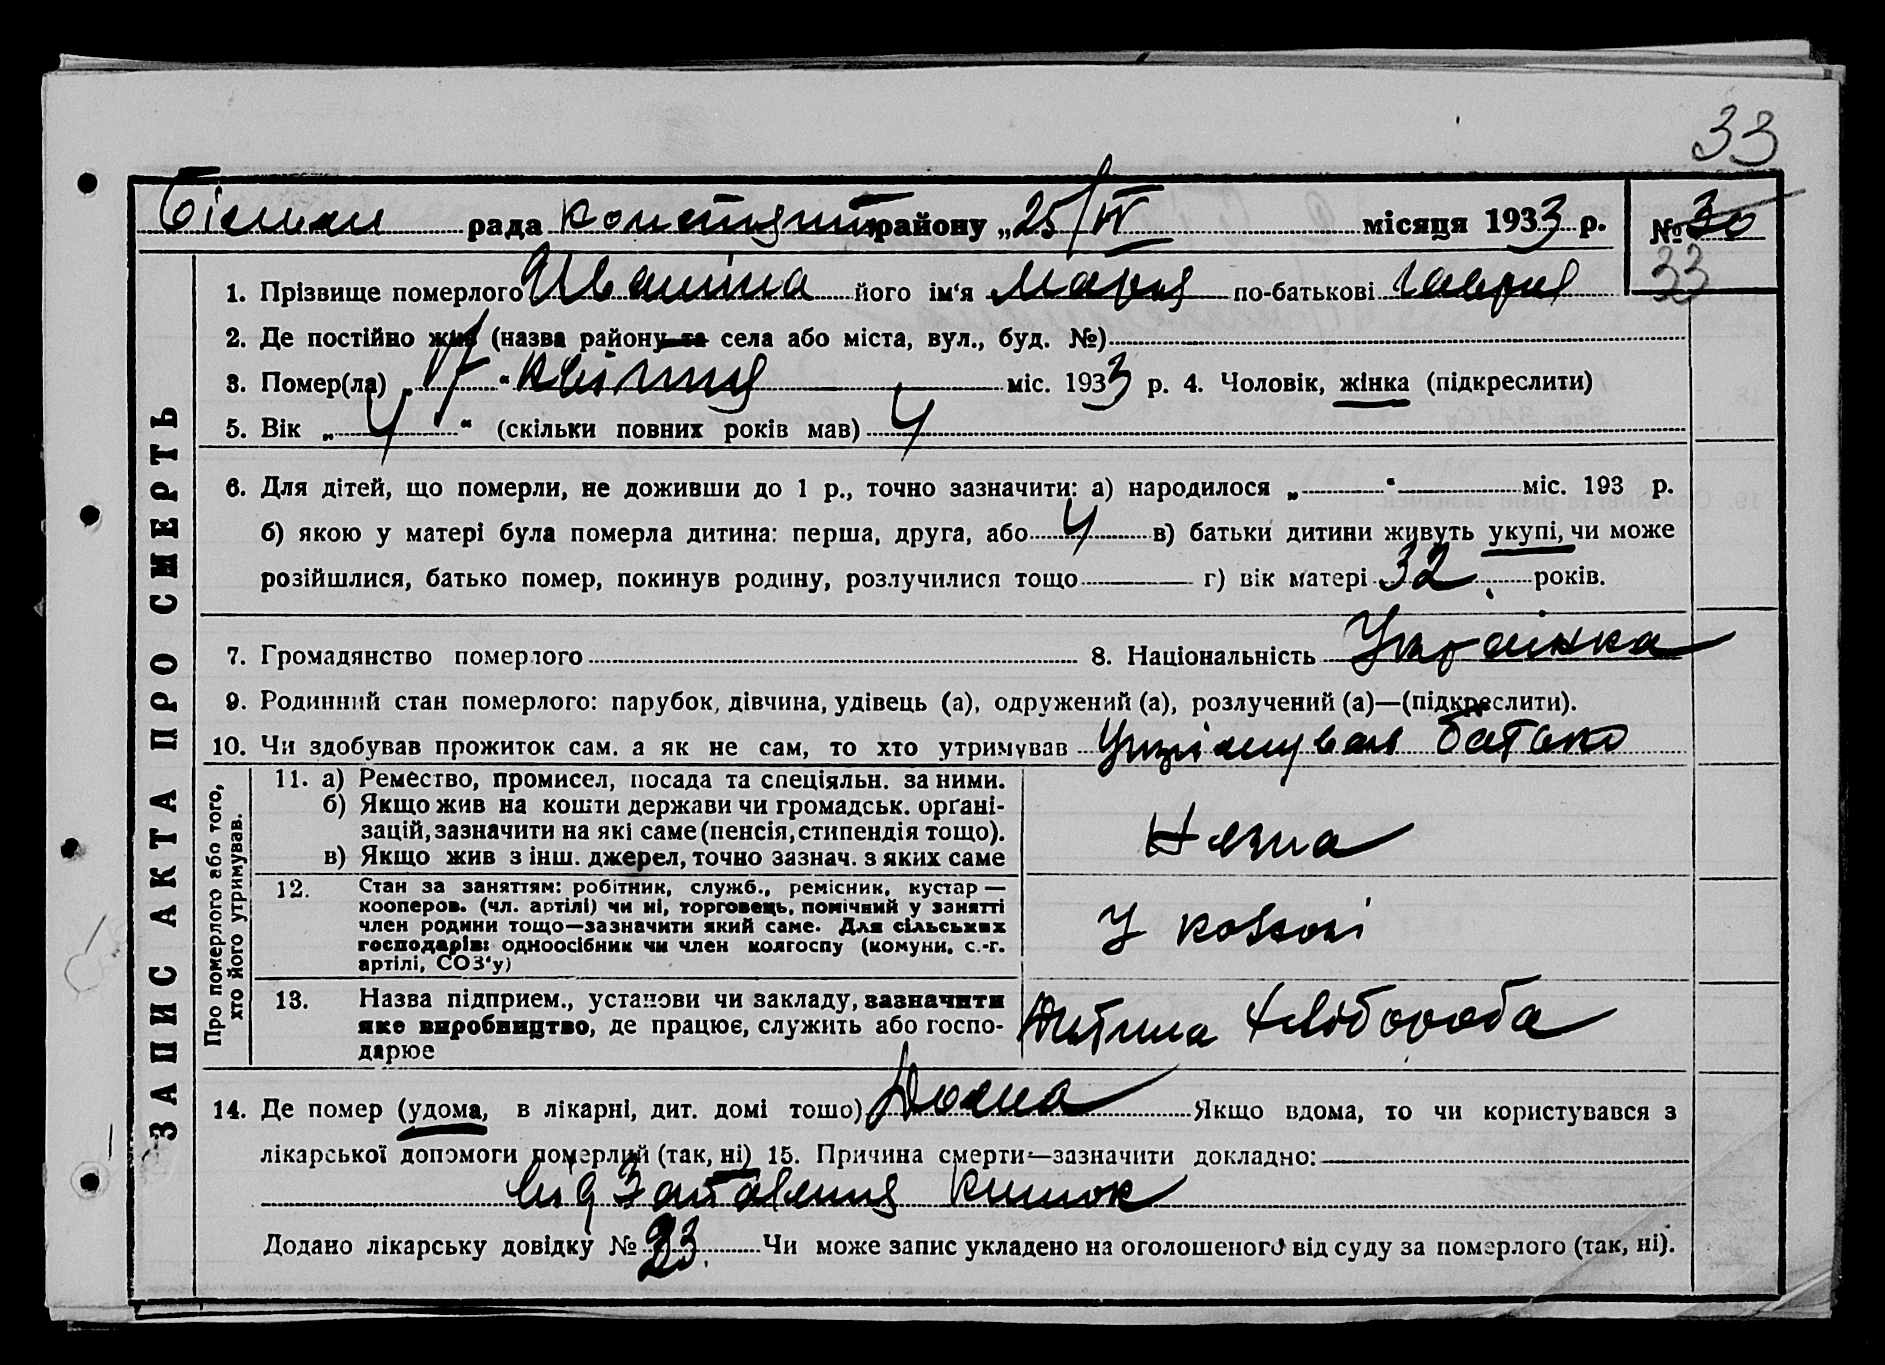 33
рада районну „25/IV місяця 1933 р. № 30
33
1. Прізвище померлого його ім‘я Мария по-батькові Гаврил
2. Де постійно жив (назва району та села або міста, вул., буд. №)
3. Помер(ла) „17“ квітня міс. 1933 р. 4. Чоловік, жінка (підкреслити)
5. Вік „4“ (скільки повних років мав) 4
6. Для дітей, що померли, не доживши до 1 р., точно зазначити: а) народилося „ “ міс. 193 р.
б) якою у матері була померла дитина: перша, друга, або 4 в) батьки дитини живуть укупі, чи може
розійшлися, батько помер, покинув родину, розлучилися тощо г) вік матері 32 років.
7. Громадянство померлого 8. Національність Українка
9. Родинний стан померлого: парубок, дівчина, удівець (а), одружений (а), розлучений (а)—(підкреслити).
10. Чи здобував прожиток сам. а як не сам, то хто утримував Утримував батько
ЗАПИС АКТА ПРО СМЕРТЬ
Про померлого або того,
хто його утримував.
11. а) Ремество, промисел, посада та спеціяльн. за ними.
б) Якщо жив на кошти держави чи громадськ. орґані-
зацій, зазначити на які саме (пенсія, стипендія тощо).
в) Якщо жив з інш. джерел, точно зазнач. з яких саме
Нема
12. Стан за заняттям: робітник, служб., ремісник, кустар —
кооперов. (чл. артілі) чи ні, торговець, помічний у занятті
член родини тощо—зазначити який саме. Для сільських
господарів: одноосібник чи член колгоспу (комуни, с.-г.
артілі, СОЗ‘у)
У колгоспі
13. Назва підприєм., установи чи закладу, зазначити
яке виробництво, де працює, служить або госпо-
дарює
Дитина хлібороба
14. Де помер (удома, в лікарні, дит. домі тошо) Дома Якщо вдома, то чи користувався з
лікарської допомоги померлий (так, ні) 15. Причина смерти—зазначити докладно:
від Запалення Кишок
Додано лікарську довідку № 33 Чи може запис укладено на оголошеного від суду за померлого (так, ні).